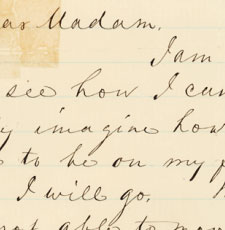 ar Madam.
I am
see how I can
y imagine how
to be on my p
I will go.
not able to man